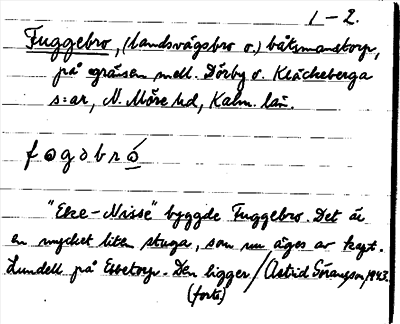 1-2.
Fuggebro, (landsvägsbro o.) båtsmanstorp,
på gränsen mell. Dörby o. Kläckeberga
s:ar, N. Möre hd, Kalm. län.
fogobró
"Elze-Nisse" byggde Fuggebro. Det är
en mycket liten stuga, som nu äges av kapt.
Lundell på Ebbetorp. Den ligger / Astrid Göransson, 1943.
(forts.)